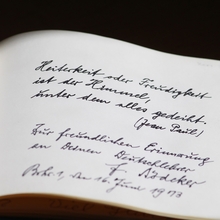 Heiterkeit oder Freudigkeit
ist der Himmel,
unter dem alles gedeiht.
(Jean Paul)
Zur freundlichen Erinnerung
an Deinen Deutschlehrer
F. Rödeker
den 15. Juni 1973